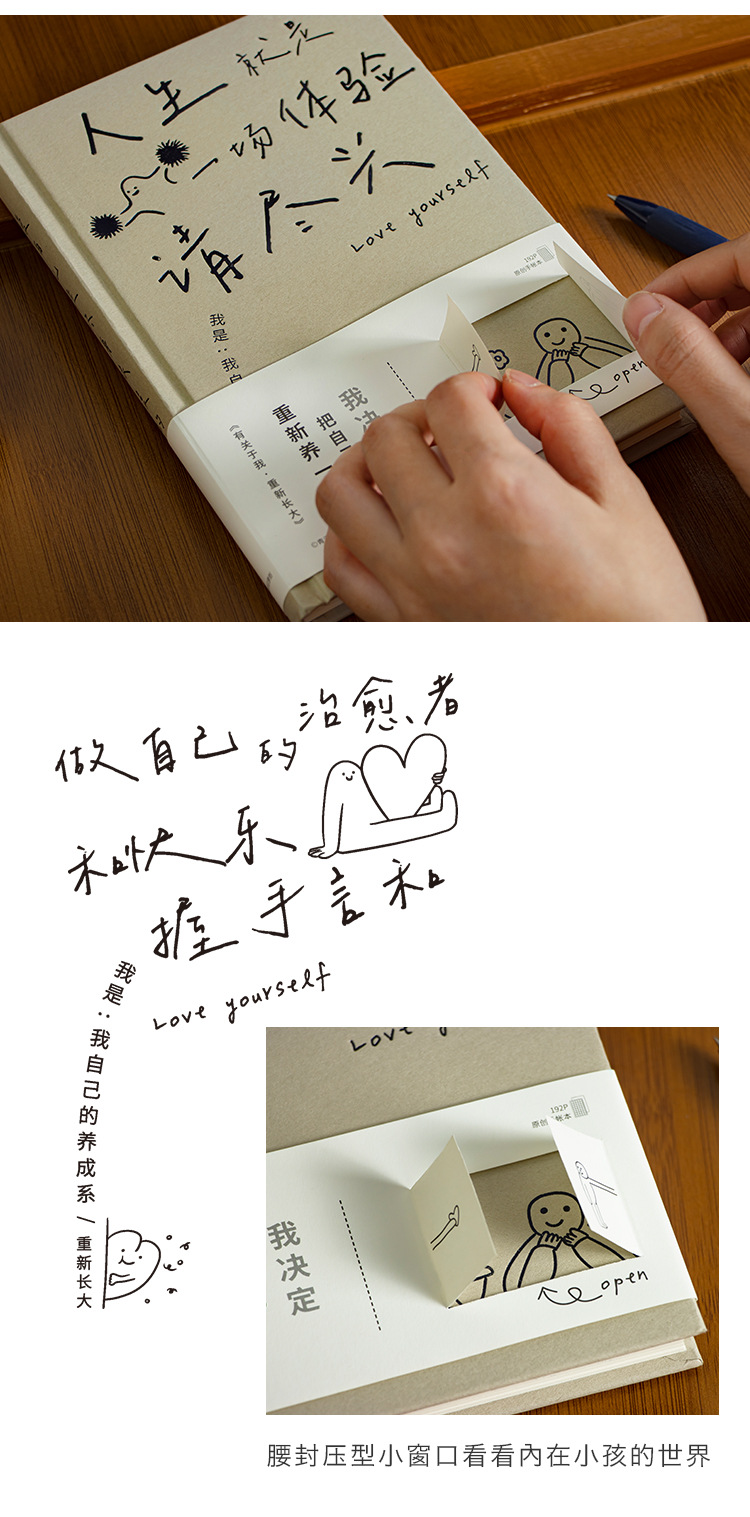 人生就是
一场体验
请尽兴
Love yourself
192P
原创手帐本
我是:我自
我决
把自
重新养一
《有关于我·重新长大》
open
做自己的治愈者
和快乐
握手言和
Love yourself
我是:我自己的养成系/重新长大
192P
我决定
open
腰封压型小窗口看看內在小孩的世界